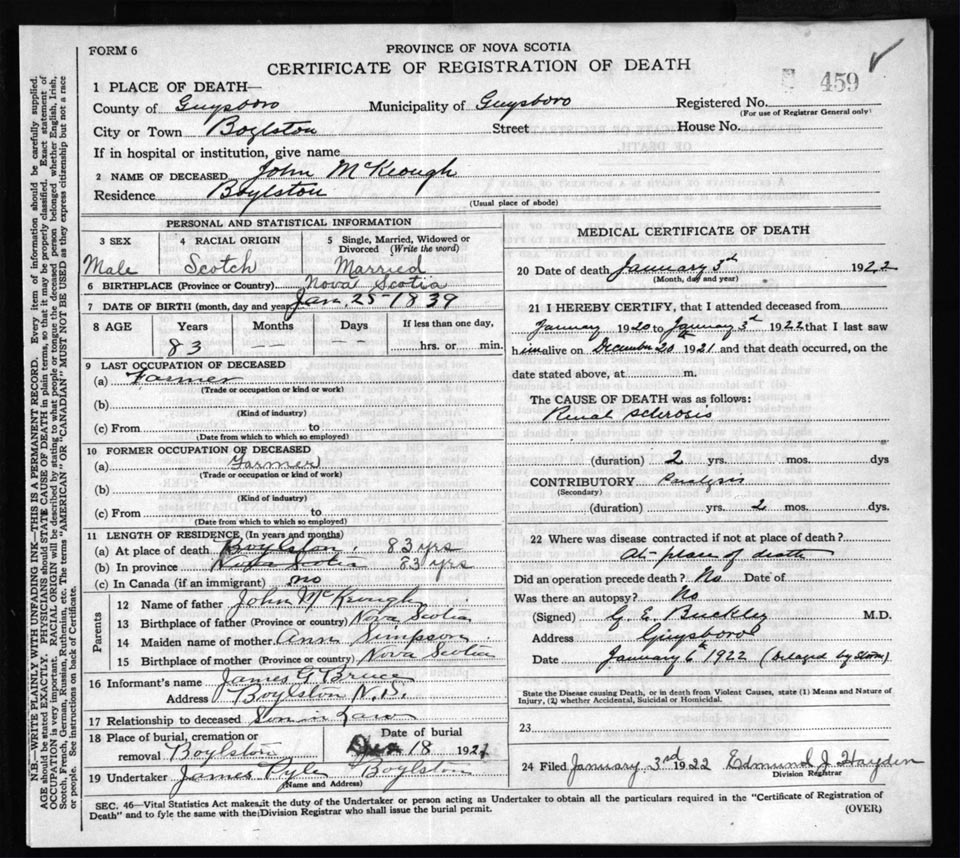 FORM 6
PROVINCE OF NOVA SCOTIA
CERTIFICATE OF REGISTRATION OF DEATH
459
1 PLACE OF DEATH—
County of Guysboro Municipality of Guysboro Registered No.
(For use of Registrar General only)
City or Town Boylston Street House No.
If in hospital or institution, give name
2 NAME OF DECEASED John McKeough
Residence Boylston
(Usual place of abode)
PERSONAL AND STATISTICAL INFORMATION
3 SEX 4 RACIAL ORIGIN 5 Single, Married, Widowed or Divorced (Write the word)
Male Scotch Married
6 BIRTHPLACE (Province or Country) Nova Scotia
7 DATE OF BIRTH (month, day and year) Jan. 25-1839
8 AGE Years Months Days If less than one day,
83 -- -- hrs. or min.
9 LAST OCCUPATION OF DECEASED
(a) Farmer
(Trade or occupation or kind or work)
(b)
(Kind of industry)
(c) From to
(Date from which to which so employed)
10 FORMER OCCUPATION OF DECEASED
(a) Farmer
(Trade or occupation or kind of work)
(b)
(Kind of industry)
(c) From to
(Date from which to which so employed)
11 LENGTH OF RESIDENCE (In years and months)
(a) At place of death Boylston 83 yrs
(b) In province Nova Scotia 83 yrs
(c) In Canada (if an immigrant) no
Parents
12 Name of father John McKeough
13 Birthplace of father (Province or country) Nova Scotia
14 Maiden name of mother Ann Simpson
15 Birthplace of mother (Province or country) Nova Scotia
16 Informant's name James G Bruce
Address Boylston N.S.
17 Relationship to deceased Son in Law
18 Place of burial, cremation or removal Boylston Date of burial 18 192
19 Undertaker James Pyle Boylston
(Name and Address)
MEDICAL CERTIFICATE OF DEATH
20 Date of death January 3rd 1922
(Month, day and year)
21 I HEREBY CERTIFY, that I attended deceased from
January 1920 to January 3rd 1922 that I last saw
him alive on December 20th 1921 and that death occurred, on the
date stated above, at m.
The CAUSE OF DEATH was as follows:
Renal sclerosis
(duration) 2 yrs. mos. dys
CONTRIBUTORY Paralysis
(Secondary)
(duration) yrs. 2 mos. dys.
22 Where was disease contracted if not at place of death?
At place of death
Did an operation precede death? No Date of
Was there an autopsy? No
(Signed) G. E. Buckley M.D.
Address Guysboro
Date January 6th 1922 (Delayed by storm)
State the Disease causing Death, or in death from Violent Causes, state (1) Means and Nature of
Injury, (2) whether Accidental, Suicidal or Homicidal.
23
24 Filed January 3rd 1922 Edmund J Hayden
Division Registrar
SEC. 46—Vital Statistics Act makes it the duty of the Undertaker or person acting as Undertaker to obtain all the particulars required in the "Certificate of Registration of
Death" and to fyle the same with the Division Registrar who shall issue the burial permit.
(OVER)
N.B.—WRITE PLAINLY WITH UNFADING INK—THIS IS A PERMANENT RECORD. Every item of information should be carefully supplied.
AGE should be stated EXACTLY. PHYSICIANS should STATE CAUSE OF DEATH in plain terms, so that it may be properly classified. Exact statement of
OCCUPATION is very important. RACIAL ORIGIN will be described by stating to what people or tongue the deceased person belonged whether English, Irish,
Scotch, French, German, Russian, Ruthenian, etc. The terms "AMERICAN" or "CANADIAN" MUST NOT BE USED as they express citizenship but not a race
or people. See instructions on back of Certificate.